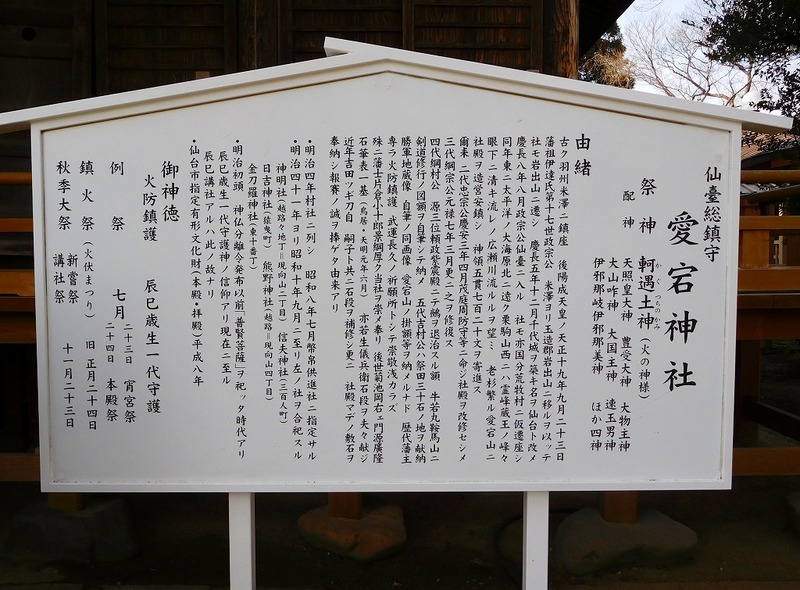 仙臺総鎮守
愛宕神社
祭神 軻遇土神(火の神様)
かぐつちのかみ
配神 天照皇大神 豊受大神 大物主神
大山咋神 大国主神 速玉男神
伊邪那岐伊邪那美神 ほか四神
由緒
古ク羽州米澤ニ鎮座 後陽成天皇ノ天正十九年九月二十三日
藩祖伊達氏第十七世政宗公 米澤ヨリ玉造郡岩出山ニ移ルヲ以ッテ
社モ岩出山ニ遷シ 慶長五年十二月千代城ヲ築キ名ヲ仙台ト改メ
慶長八年八月政宗公仙臺ニ入ル 社モ亦国分荒牧村ニ仮遷座シ
同年東ニ太平洋ノ大海原北ニ遠ク栗駒山西ニハ霊峰蔵王ノ峰々
眼下ニ清キ流レノ広瀬川流ルルヲ望ミ 老杉繁ル愛宕山ニ
社殿ヲ造営安鎮シ 神領五貫七百二十文ヲ寄進ス
爾来 二代忠宗公慶安三年四月茂庭周防守等ニ命ジ社殿ヲ改修セシメ
三代綱宗公元禄七年三月更ニ之ヲ修復ス
四代綱村公 源三位頼政紫震殿ニテ鵺ヲ退治スル額 牛若丸鞍馬山ニ
剣道修行ノ図額ヲ自筆シテ納メ 五代吉村公ハ祭田三十石ノ地ヲ献納
勝軍地蔵像ノ自筆ノ同画像 愛宕山ノ掛額等ヲ納メルナド 歴代藩主
専ラ火防鎮護 武運長久ノ祈願所トシテ崇敬浅カラズ
殊ニ藩士芦名刑部景綱厚ク当社ヲ崇メ奉リ 後世菊池岡右ェ門源廣隆
石華表一基(鳥居・天明元年六月) 亦若生儀兵衛石段ヲ夫々献ジ
近年吉田ツギヲ自 嗣子ト共ニ石段ヲ補修シ更ニ 社殿マデノ敷石ヲ
奉納シ報賽ノ誠ヲ捧ゲタ由来アリ
・明治四年村社ニ列シ 昭和八年七月幣帛供進社ニ指定サル
・明治四十一年ヨリ昭和十年九月ニ至リ左ノ社ヲ合祀スル
神明社(越路々地丁=現向山二丁目) 信夫神社(三百人町)
日吉神社(猿曳町) 熊野神社(越路=現向山四丁目)
金刀羅神社(東十番丁)
・明治初頭 神仏分離令発布以前「普賢菩薩」ヲ祀ッタ時代アリ
辰巳歳生一代守護神ノ信仰アリ現在ニ至ル
辰巳講社アルハ此ノ故ナリ
・仙台市指定有形文化財(本殿・拝殿)平成八年
御神徳
火防鎮護 辰巳歳生一代守護
例祭 七月 二十三日 宵宮祭
二十四日 本殿祭
鎮火祭(火伏まつり) 旧正月二十四日
秋季大祭 新嘗祭 講社祭 十一月二十三日